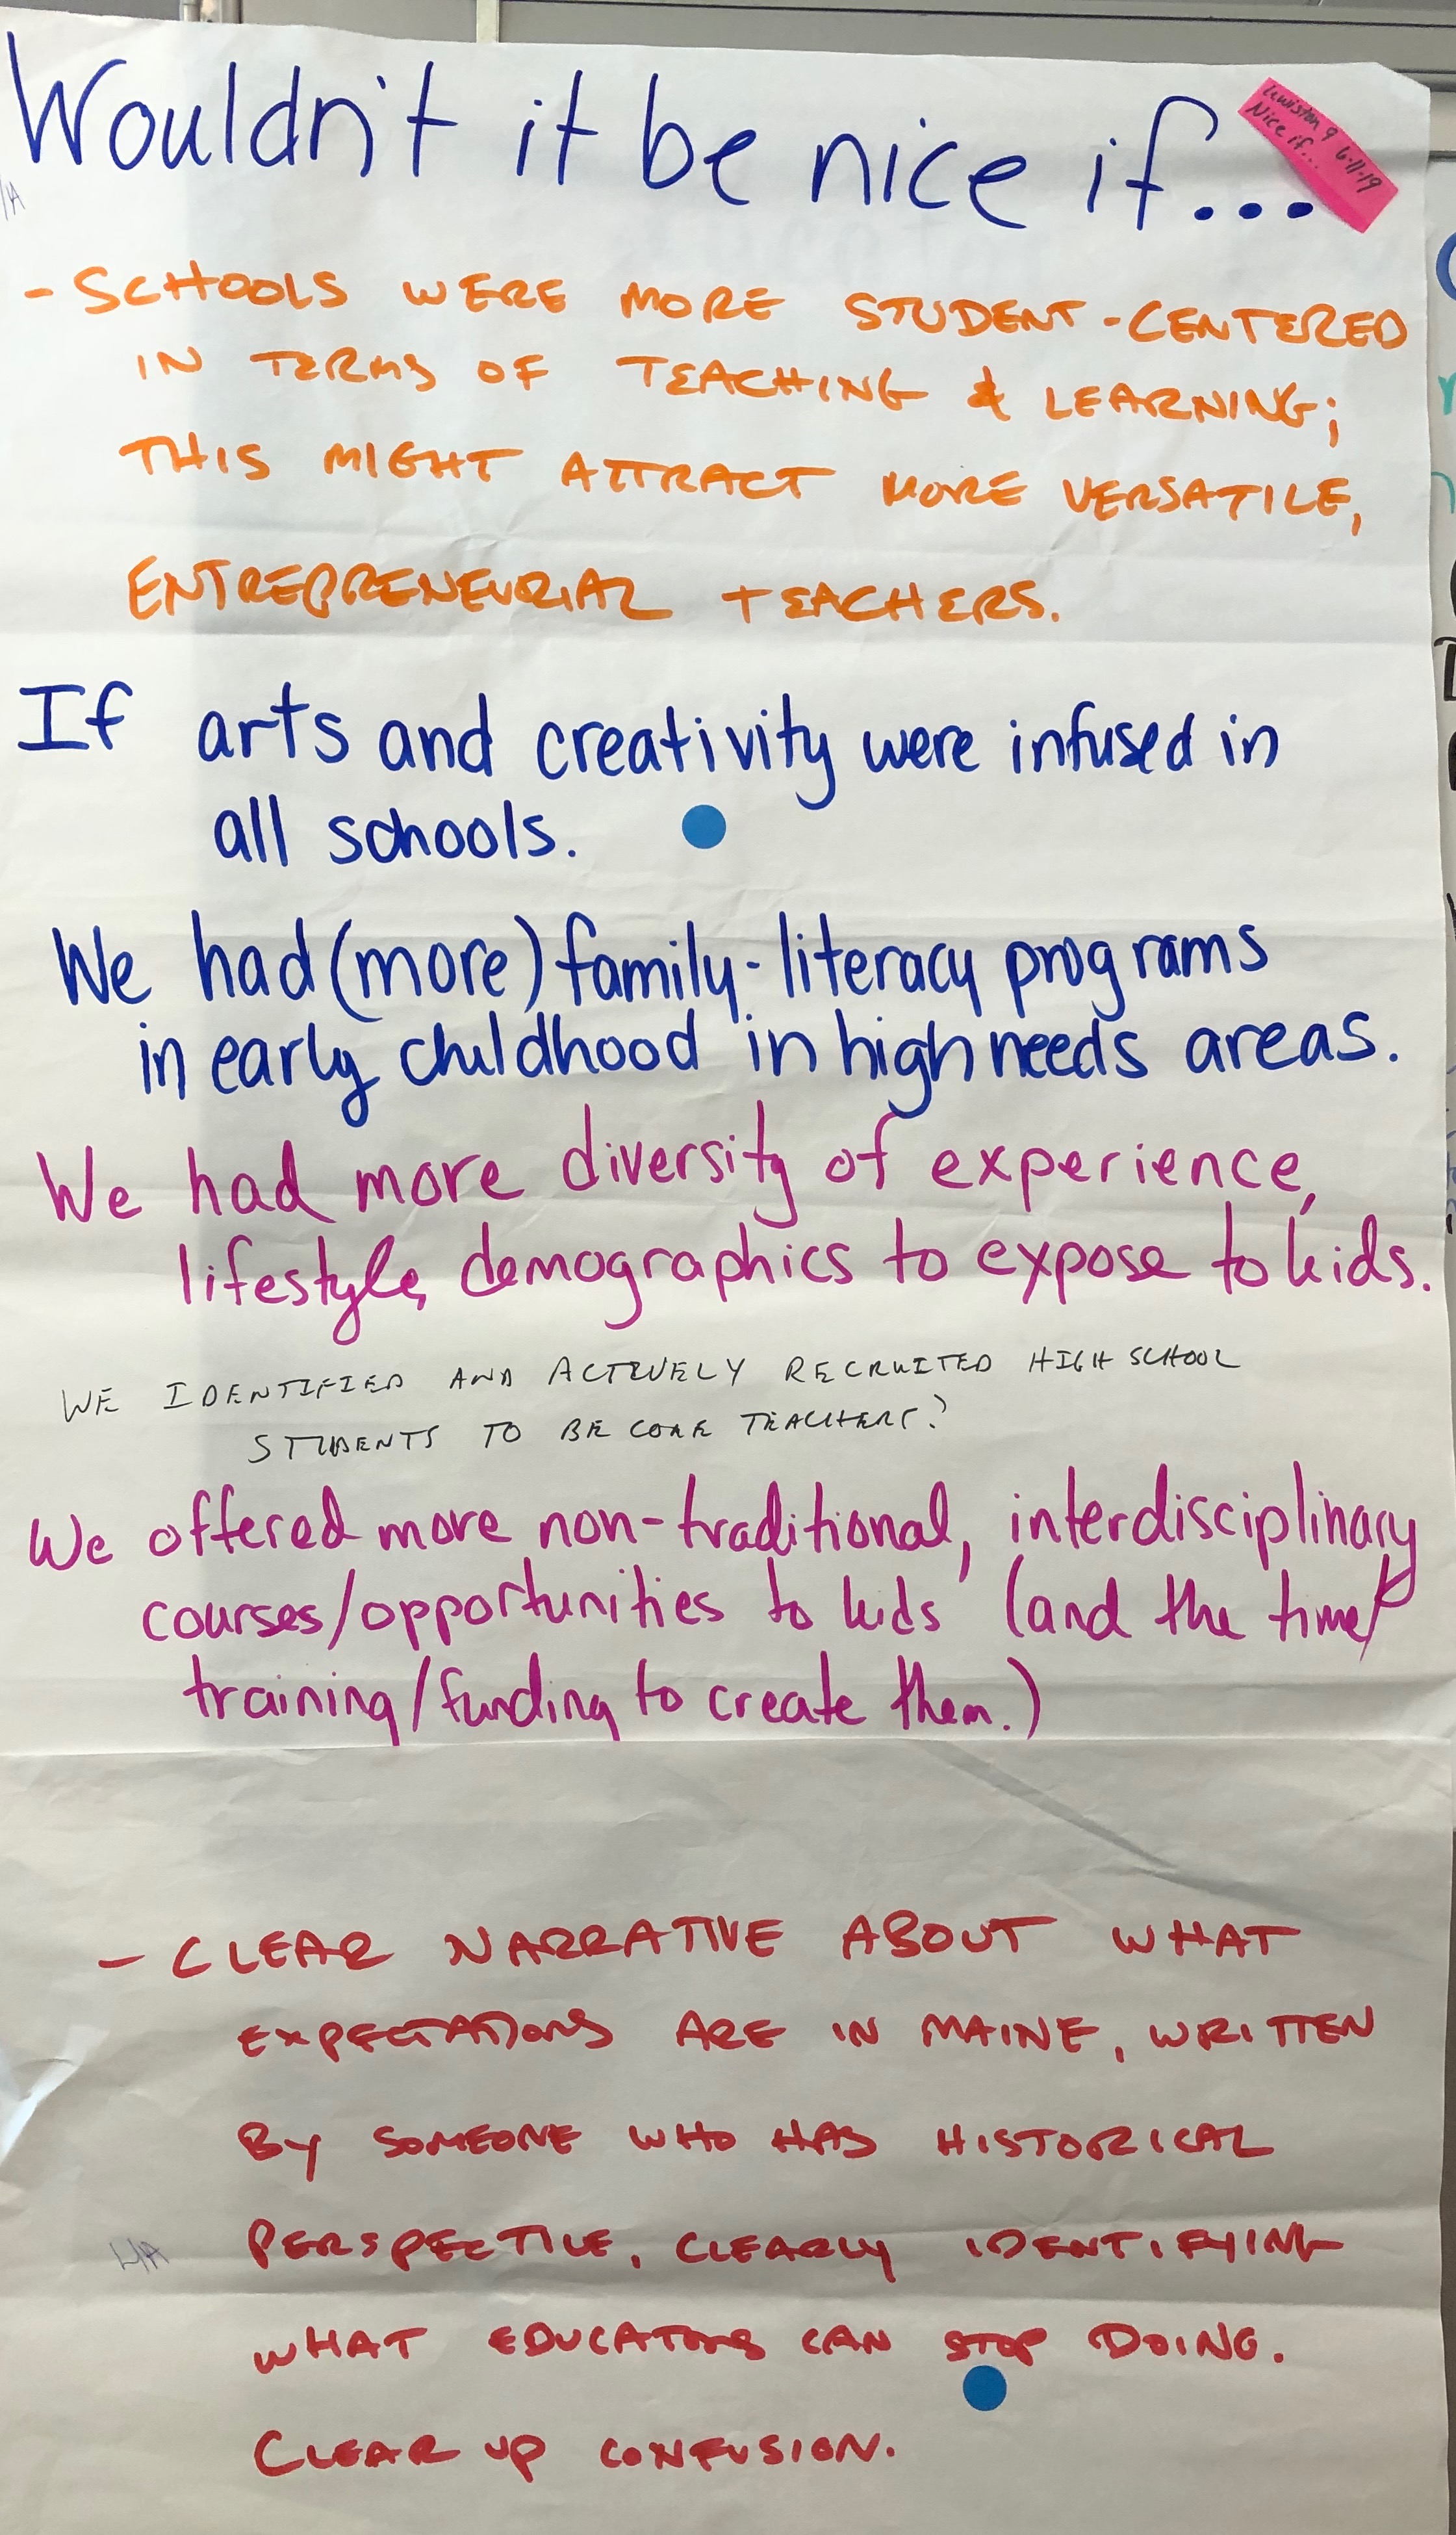 Wouldn't it be nice if...
Lewiston 9 6-11-19
Nice if...
- SCHOOLS WERE MORE STUDENT-CENTERED
IN TERMS OF TEACHING & LEARNING;
THIS MIGHT ATTRACT MORE VERSATILE,
ENTREPRENEURIAL TEACHERS.
If arts and creativity were infused in
all schools.
We had (more) family-literacy programs
in early childhood in high needs areas.
We had more diversity of experience,
lifestyle, demographics to expose to kids.
WE IDENTIFIED AND ACTIVELY RECRUITED HIGH SCHOOL
STUDENTS TO BECOME TEACHERS?
We offered more non-traditional, interdisciplinary
courses/opportunities to kids (and the time/
training/funding to create them.)
- CLEAR NARRATIVE ABOUT WHAT
EXPECTATIONS ARE IN MAINE, WRITTEN
BY SOMEONE WHO HAS HISTORICAL
PERSPECTIVE, CLEARLY IDENTIFYING
WHAT EDUCATORS CAN STOP DOING.
CLEAR UP CONFUSION.